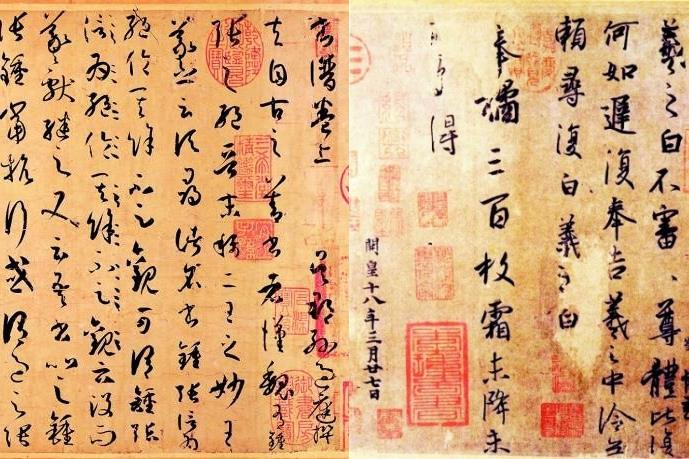 羲之白不審、尊體比復
何如遲復奉告羲之中冷無
賴尋復白羲之白
奉橘三百枚霜未降未
可多得
開皇十八年三月廿七日
書譜卷上 吳郡孫過庭撰
夫自古之善書者漢魏有鍾
張之絕晉末稱二王之妙王
羲之云頃尋諸名書鍾張信為
絕倫其餘不足觀可謂鍾張
信為絕倫其餘不足觀云沒而
羲獻繼之又云吾書比之鍾
張鍾當抗行或謂過之張